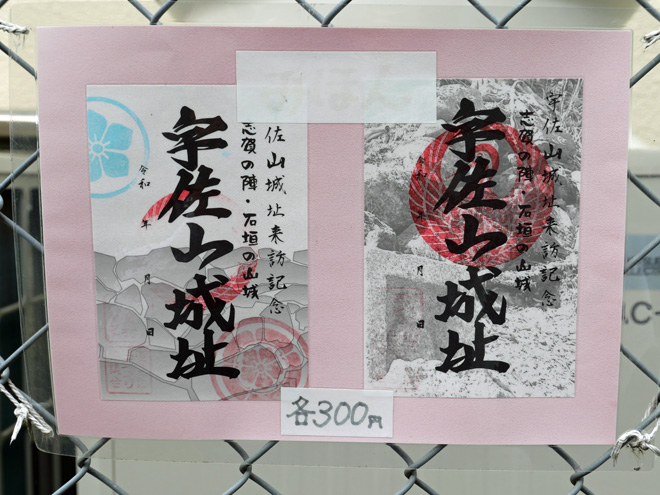 みほん
宇佐山城址来訪記念
志賀の陣・石垣の山城
宇佐山城址
令和
年
月
日
宇佐山城址来訪記念
志賀の陣・石垣の山城
宇佐山城址
令和
年
月
日
各300円